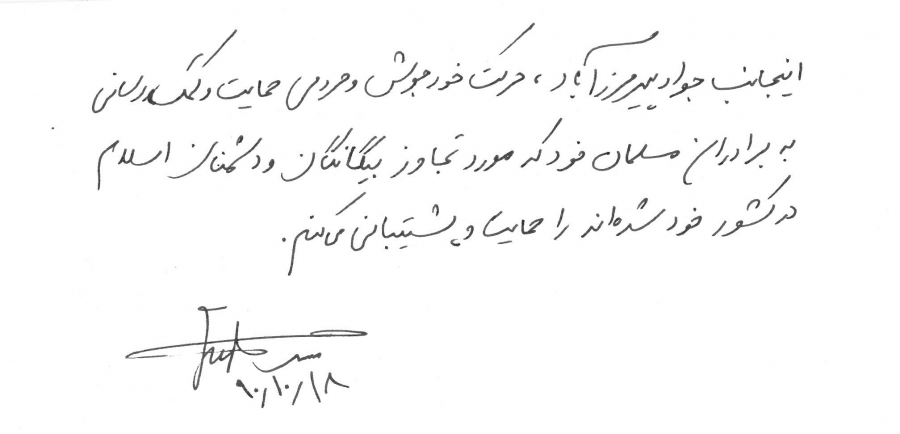 اینجانب جواد پیرمرزآباد، حرکت خودجوش و مردمی حمایت و کمک رسانی
به برادران مسلمان خود که مورد تجاوز بیگانگان و دشمنان اسلام
در کشور خود شده‌اند را حمایت و پشتیبانی می‌کنم.
۹۰/۱۰/۱۸